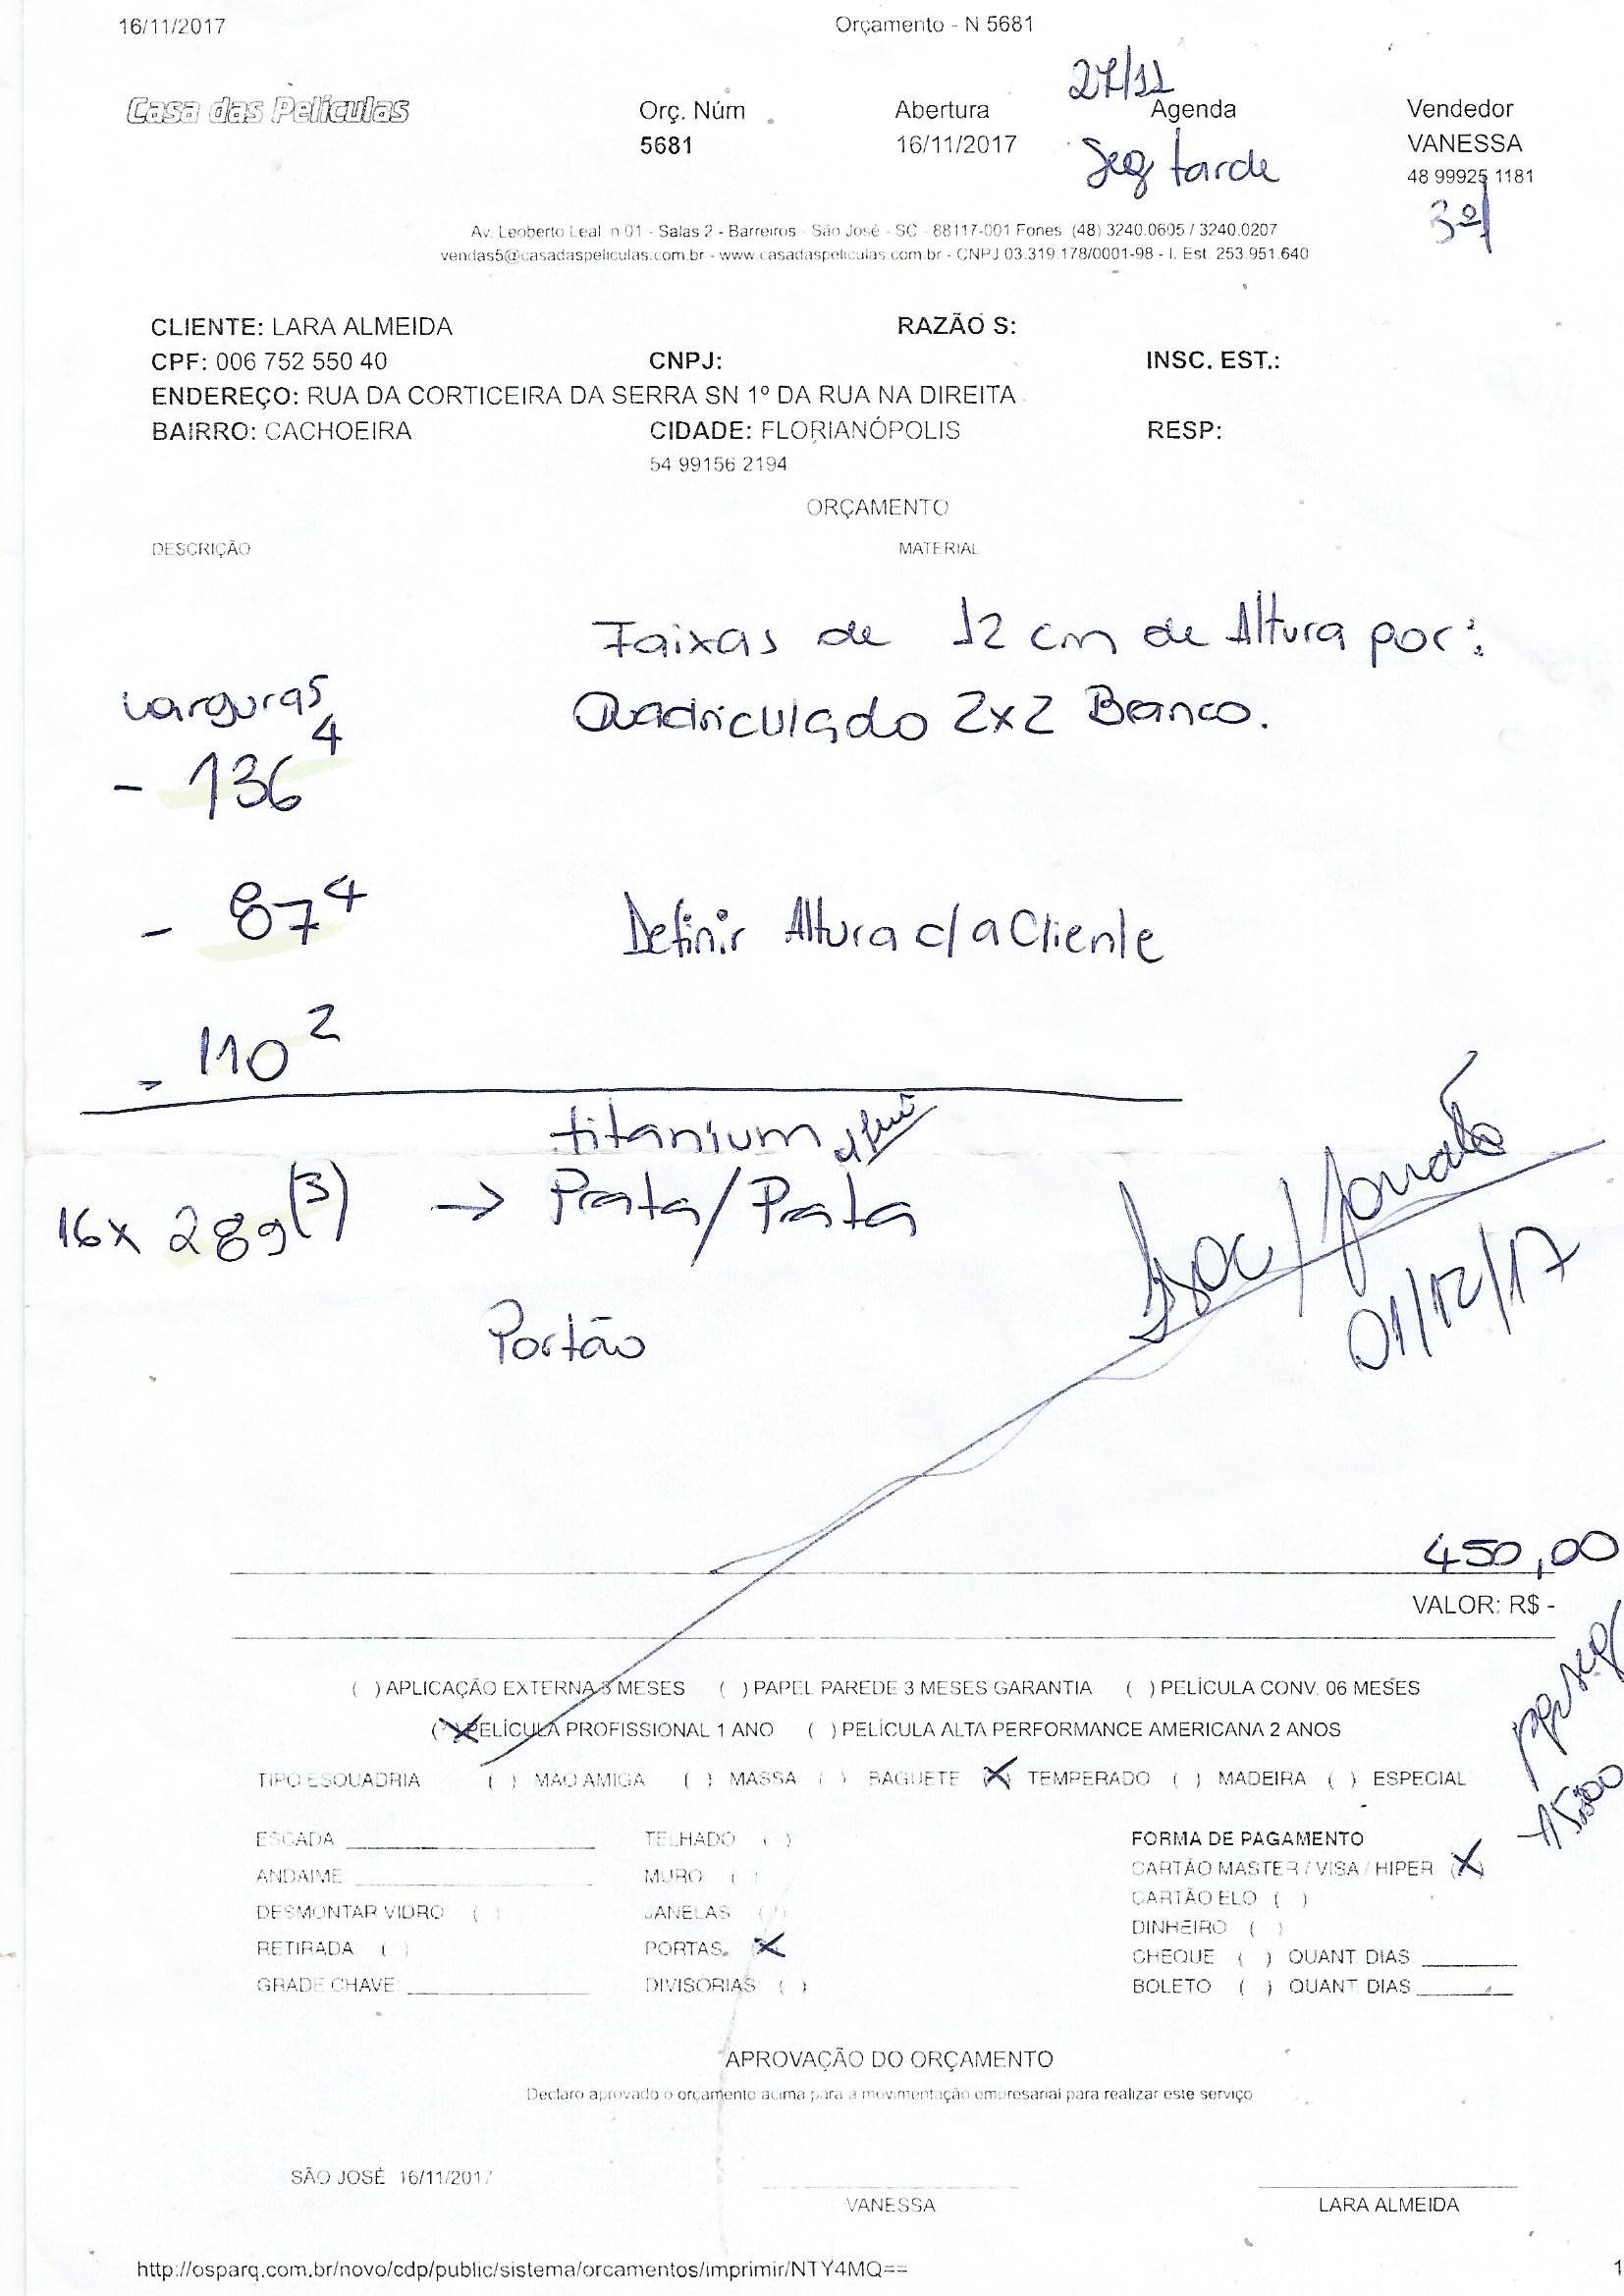 16/11/2017 Orçamento - N 5681
27/11
Casa das Películas Orç. Núm Abertura Agenda Vendedor
5681 16/11/2017 Seg tarde VANESSA
48 99925 1181
3ª
Av. Leoberto Leal, n 01 - Salas 2 - Barreiros - São José - SC - 88117-001 Fones (48) 3240.0605 / 3240.0207
vendas5@casadaspeliculas.com.br - www.casadaspeliculas.com.br - CNPJ 03.319.178/0001-98 - I. Est. 253.951.640
CLIENTE: LARA ALMEIDA RAZÃO S:
CPF: 006 752 550 40 CNPJ: INSC. EST.:
ENDEREÇO: RUA DA CORTICEIRA DA SERRA SN 1º DA RUA NA DIREITA
BAIRRO: CACHOEIRA CIDADE: FLORIANÓPOLIS RESP:
54 99156 2194
ORÇAMENTO
DESCRIÇÃO MATERIAL
Faixas de 12 cm de Altura por:
Larguras Quadriculado 2x2 Branco.
- 136 4
- 87 4 Definir Altura c/ a Cliente
- 110 2
titanium
16 x 289 (3) → Prata/Prata
01/12/17
Portão
450,00
VALOR: R$ -
( ) APLICAÇÃO EXTERNA 3 MESES ( ) PAPEL PAREDE 3 MESES GARANTIA ( ) PELÍCULA CONV. 06 MESES
(X) PELÍCULA PROFISSIONAL 1 ANO ( ) PELÍCULA ALTA PERFORMANCE AMERICANA 2 ANOS
TIPO ESQUADRIA ( ) MAO AMIGA ( ) MASSA ( ) BAGUETE (X) TEMPERADO ( ) MADEIRA ( ) ESPECIAL
ESCADA TELHADO ( ) FORMA DE PAGAMENTO
ANDAIME MURO ( ) CARTÃO MASTER / VISA / HIPER (X)
DESMONTAR VIDRO ( ) JANELAS ( ) CARTÃO ELO ( )
RETIRADA ( ) PORTAS (X) DINHEIRO ( )
GRADE CHAVE DIVISORIAS ( ) CHEQUE ( ) QUANT. DIAS
BOLETO ( ) QUANT. DIAS
APROVAÇÃO DO ORÇAMENTO
Declaro aprovado o orçamento acima para a movimentação empresarial para realizar este serviço
SÃO JOSÉ 16/11/2017
VANESSA LARA ALMEIDA
http://osparq.com.br/novo/cdp/public/sistema/orcamentos/imprimir/NTY4MQ== 1